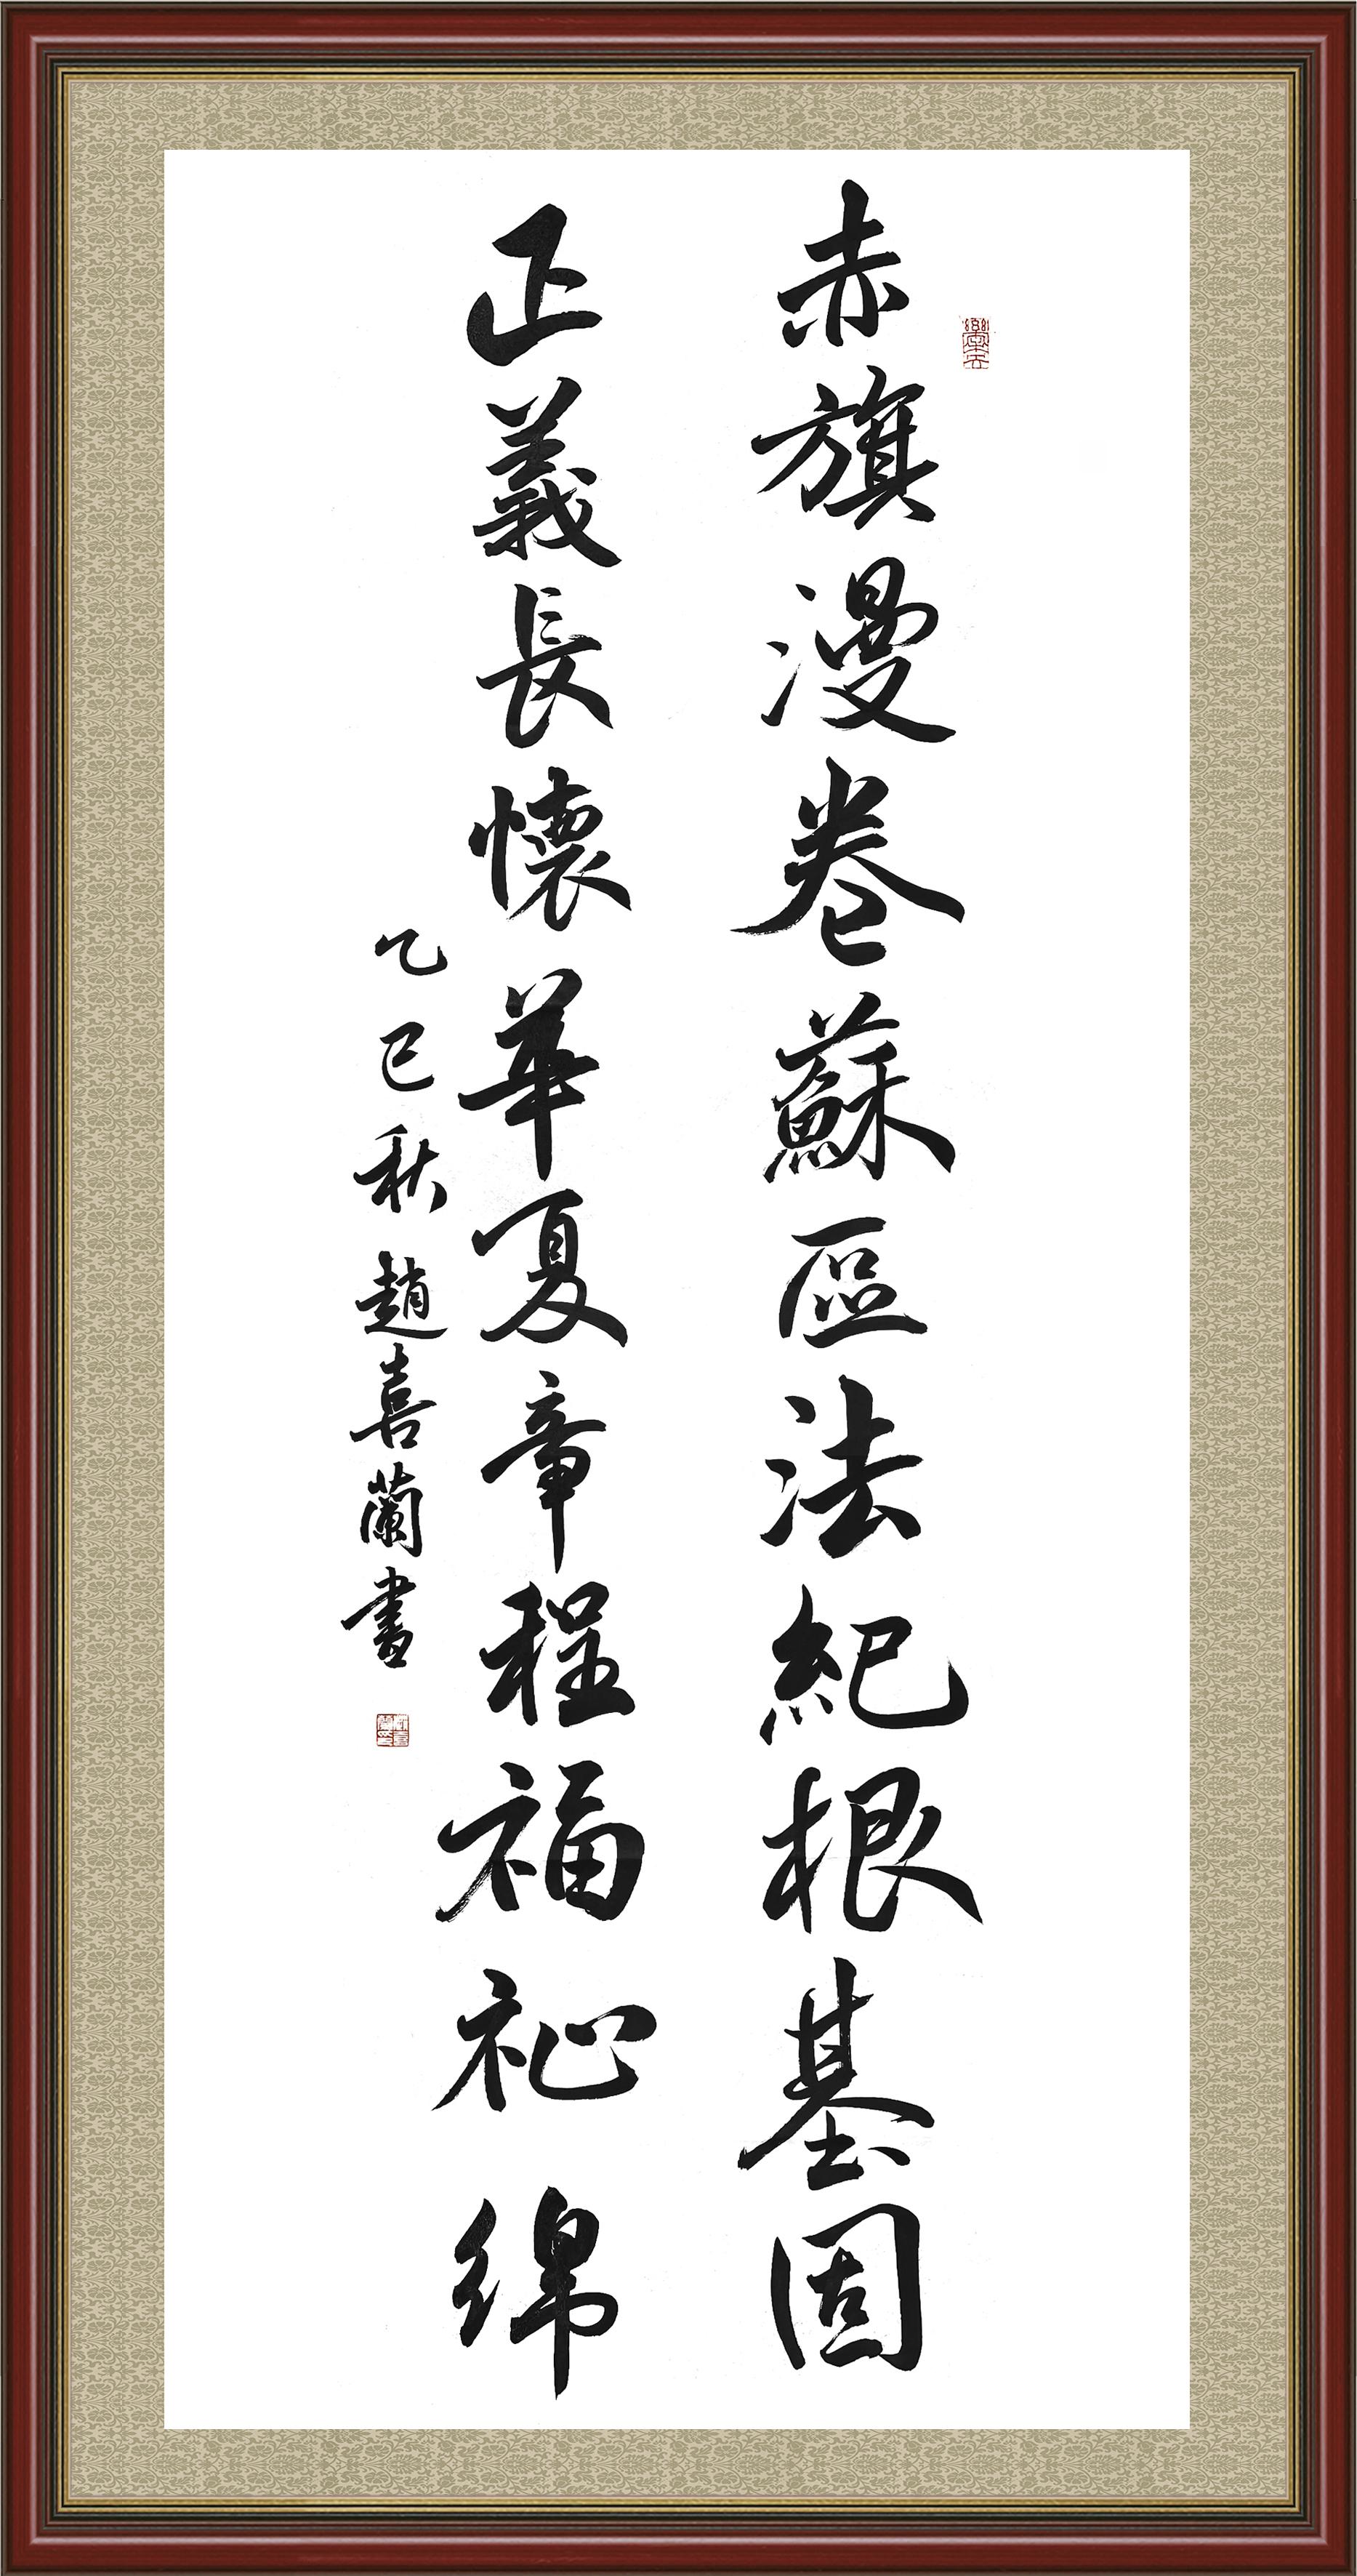 赤旗漫卷蘇區法紀根基固
正義長懷華夏章程福祉綿
乙巳秋趙喜蘭書